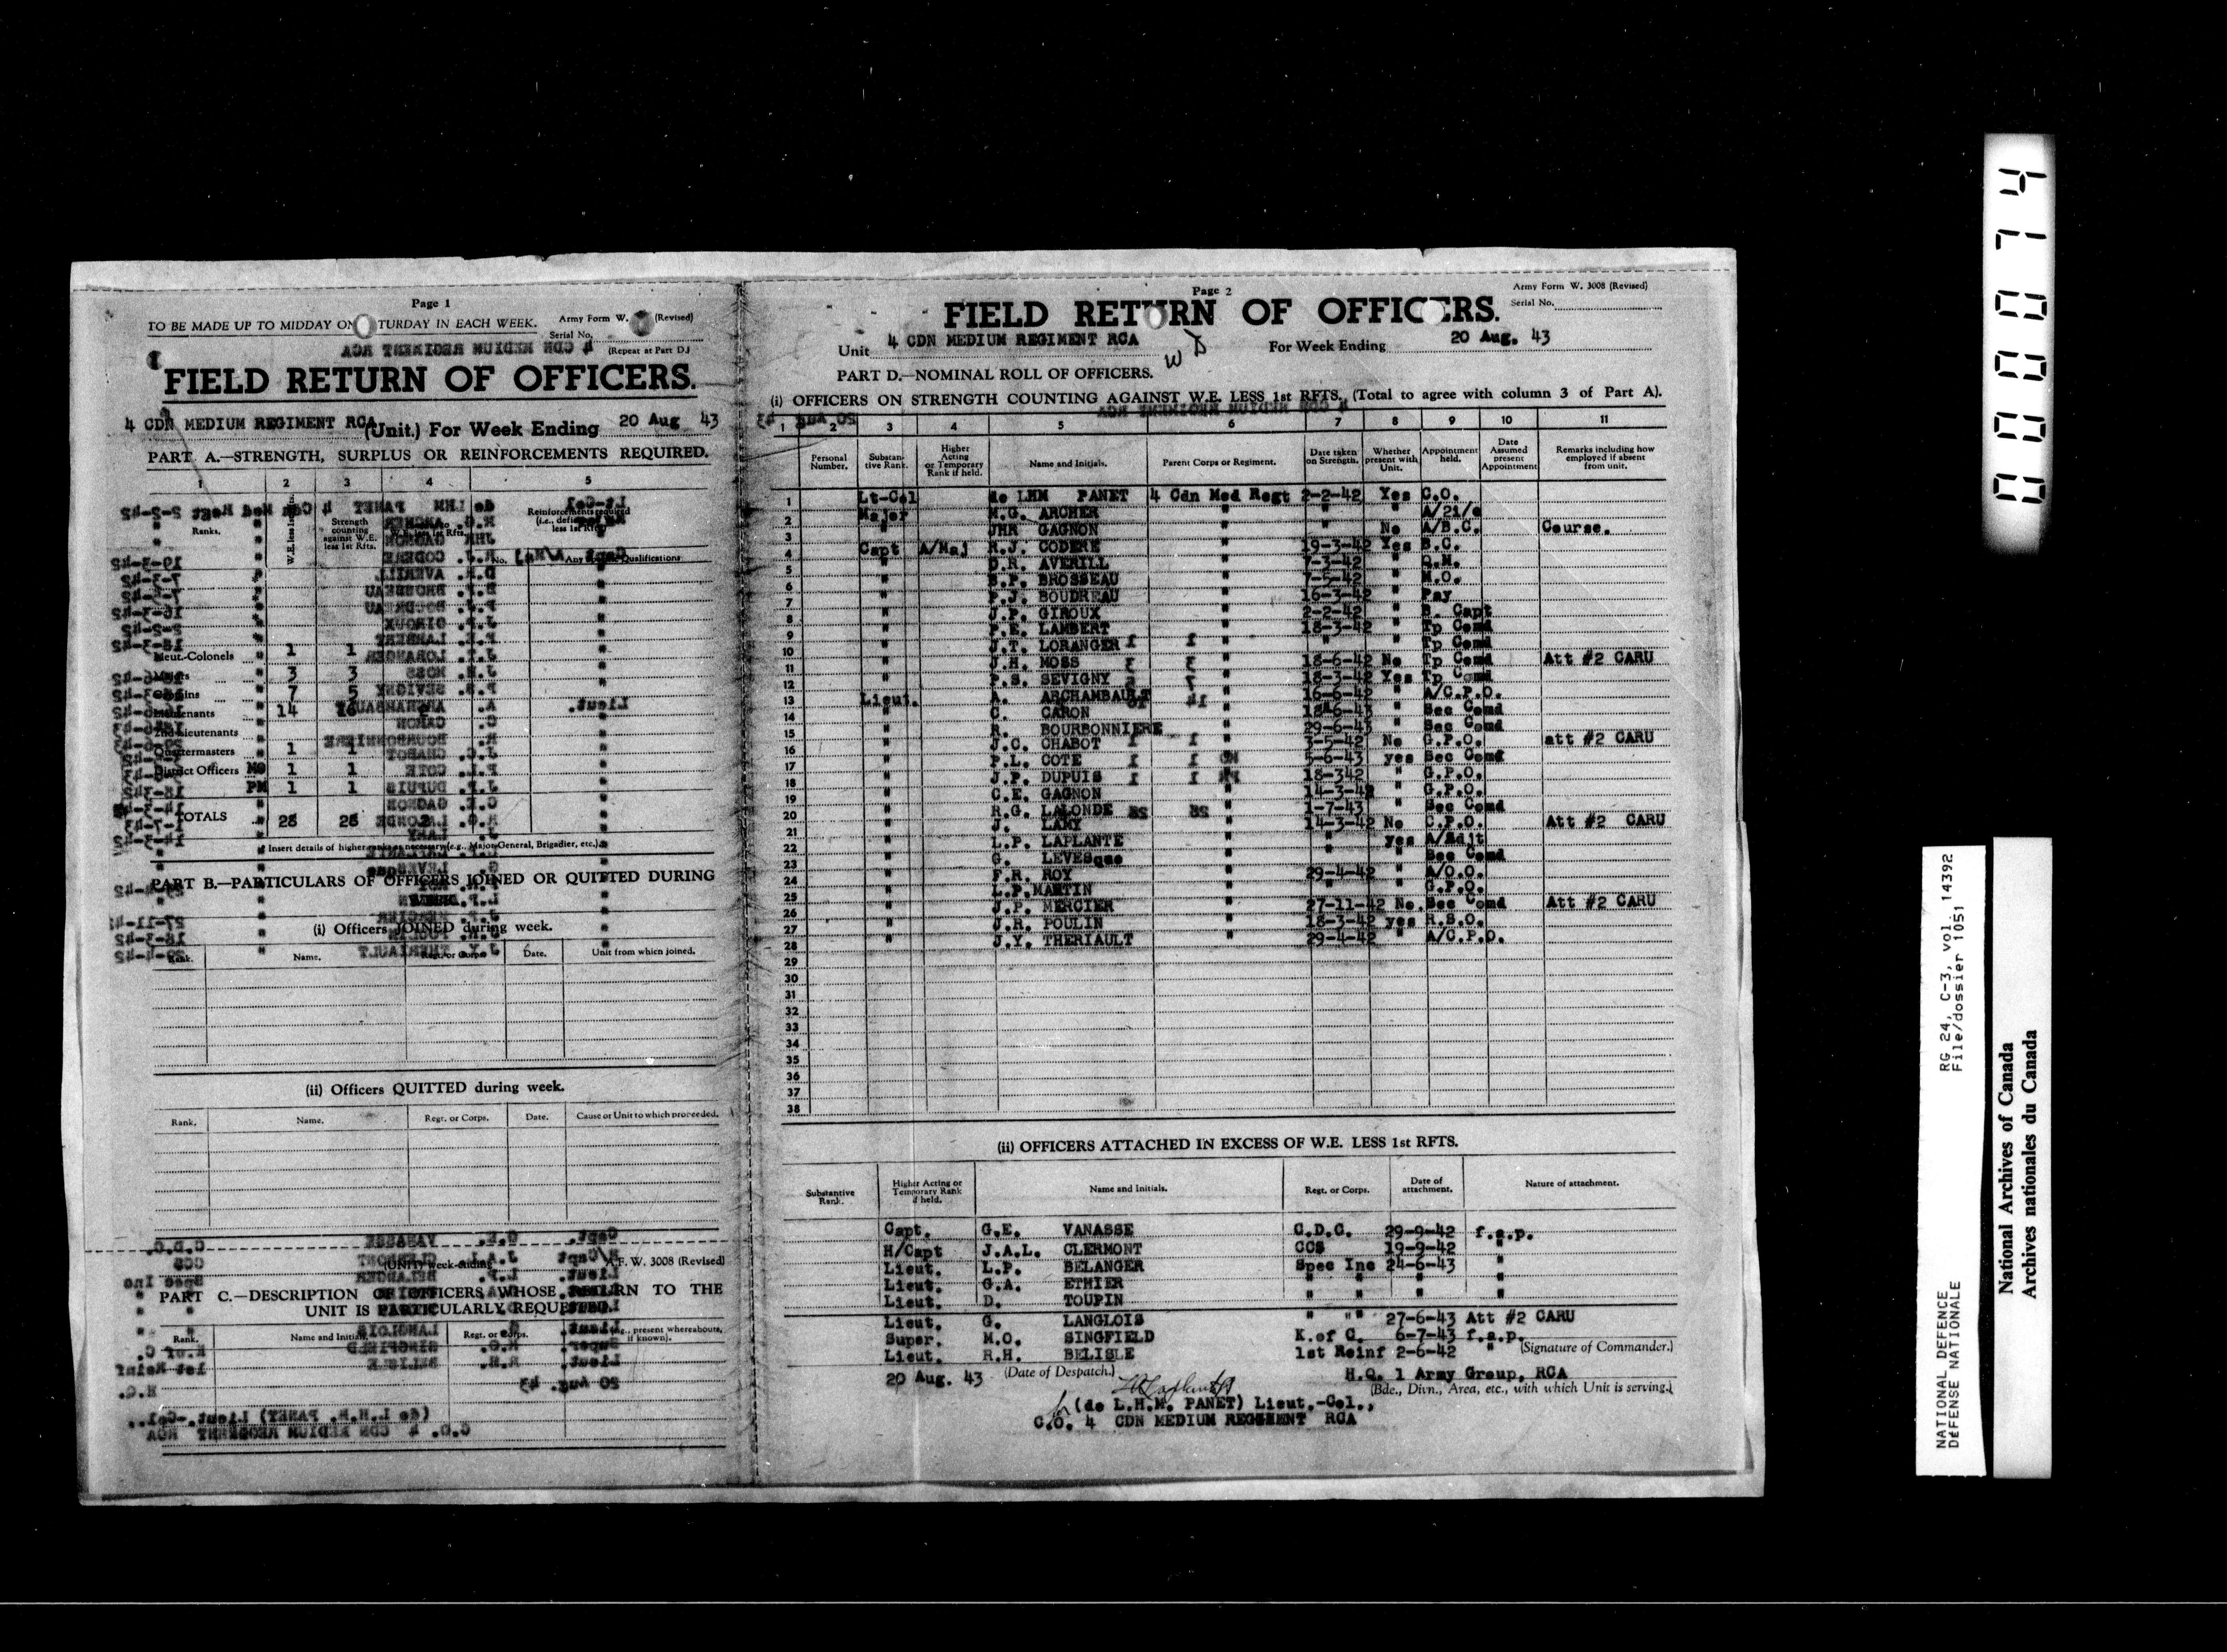 Page 1
TO BE MADE UP TO MIDDAY ON TURDAY IN EACH WEEK. Army Form W. (Revised)
Serial No.
(Repeat at Part D.)
FIELD RETURN OF OFFICERS.
4 CDN MEDIUM REGIMENT RCA (Unit.) For Week Ending 20 Aug 43
PART A.—STRENGTH, SURPLUS OR REINFORCEMENTS REQUIRED.
1 2 3 4 5
Ranks. W.E. less 1st Strength counting against W.E. less 1st Rfts. Reinforcements required (i.e., less 1st Rfts) No. Any Qualifications
Lieut.-Colonels 1 1
Majors 3 3
Captains 7 5
Lieutenants 14 16
2nd Lieutenants
Quartermasters 1 1
District Officers MO 1 1
PM 1 1
TOTALS 28 28
Insert details of higher ranks as necessary (e.g., Major-General, Brigadier, etc.).
PART B.—PARTICULARS OF OFFICERS JOINED OR QUITTED DURING
(i) Officers JOINED during week.
Rank. Name. Regt. or Corps Date. Unit from which joined.
(ii) Officers QUITTED during week.
Rank. Name. Regt. or Corps. Date. Cause or Unit to which proceeded.
(UNIT) week-ending A.F. W. 3008 (Revised)
PART C.—DESCRIPTION OF OFFICERS WHOSE RETURN TO THE
UNIT IS PARTICULARLY REQUESTED.
Rank. Name and Initials. Regt. or Corps. (e.g., present whereabouts, if known).
Page 2
Army Form W. 3008 (Revised)
Serial No.
FIELD RETURN OF OFFICERS.
Unit 4 CDN MEDIUM REGIMENT RCA For Week Ending 20 Aug. 43
W D
PART D.—NOMINAL ROLL OF OFFICERS.
(i) OFFICERS ON STRENGTH COUNTING AGAINST W.E. LESS 1st RFTS. (Total to agree with column 3 of Part A).
1 2 3 4 5 6 7 8 9 10 11
Personal Number. Substantive Rank. Higher Acting or Temporary Rank if held. Name and Initials. Parent Corps or Regiment. Date taken on Strength. Whether present with Unit. Appointment held. Date Assumed present Appointment Remarks including how employed if absent from unit.
1 Lt-Col de LHM PANET 4 Cdn Med Regt 2-2-42 Yes C.O.
2 Major M.G. ARCHER " " " A/2i/c
3 " JHR GAGNON " " No A/B.C. Course.
4 Capt A/Maj R.J. CODERE " 19-3-42 Yes B.C.
5 " D.R. AVERILL " 7-3-42 " Q.M.
6 " B.P. BROSSEAU " 7-5-42 " M.O.
7 " P.J. BOUDREAU " 16-3-42 " Pay
8 " J.P. GIROUX " 2-2-42 " B. Capt
9 " P.E. LAMBERT " 18-3-42 " Tp Comd
10 " J.T. LORANGER " " " Tp Comd
11 " J.H. MOSS " 18-6-42 No Tp Comd Att #2 CARU
12 " P.S. SEVIGNY " 18-3-42 Yes Tp Comd
13 Lieut. A. ARCHAMBAULT " 16-6-42 " A/C.P.O.
14 " C. CARON " 18-6-43 " Sec Comd
15 " R. BOURBONNIERE " 29-6-43 " Sec Comd
16 " J.C. CHABOT " 3-5-42 No G.P.O. att #2 CARU
17 " P.L. COTE " 5-6-43 yes Sec Comd
18 " J.P. DUPUIS " 18-342 " G.P.O.
19 " C.E. GAGNON " 14-3-42 " G.P.O.
20 " R.G. LALONDE " 1-7-43 " Sec Comd
21 " J. LAMY " 14-3-42 No C.P.O. Att #2 CARU
22 " L.P. LAPLANTE " " yes A/Adjt
23 " G. LEVESque " " " Sec Comd
24 " F.R. ROY " 29-4-42 " A/O.O.
25 " L.P.MARTIN " " " G.P.O.
26 " J.P. MERCIER " 27-11-42 No. Sec Comd Att #2 CARU
27 " J.R. POULIN " 18-3-42 yes R.S.O.
28 " J.Y. THERIAULT " 29-4-42 " A/C.P.O.
29
30
31
32
33
34
35
36
37
38
(ii) OFFICERS ATTACHED IN EXCESS OF W.E. LESS 1st RFTS.
Substantive Rank. Higher Acting or Temporary Rank if held. Name and Initials. Regt. or Corps. Date of attachment. Nature of attachment.
Capt. G.E. VANASSE C.D.C. 29-9-42 f.a.p.
H/Capt J.A.L. CLERMONT CCS 19-9-42 "
Lieut. L.P. BELANGER Spec Inc 24-6-43 "
Lieut. G.A. ETHIER " " " " "
Lieut. D. TOUPIN " " " "
Lieut. G. LANGLOIS " "" 27-6-43 Att #2 CARU
Super. M.O. SINGFIELD K.of C. 6-7-43 f.a.p.
Lieut. R.H. BELISLE 1st Reinf 2-6-42 " (Signature of Commander.)
20 Aug. 43 (Date of Despatch.) H.Q. 1 Army Group, RCA
(Bde., Divn., Area, etc., with which Unit is serving.)
(de L.H.M. PANET) Lieut.-Col.,
C.O. 4 CDN MEDIUM REGIMENT RCA
000074
RG 24, C-3, vol. 14392
File/dossier 1051
NATIONAL DEFENCE
DÉFENSE NATIONALE
National Archives of Canada
Archives nationales du Canada